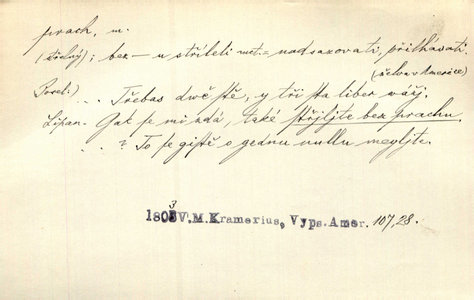 prach, m.
(střelný); bez – u stříleti met. = nadsazovati, přilhávati.
(želva v Americe)
Posel.) . . Třebas dwě stě, y tři sta liber wážj.
Lipan. Gak se mi zdá, také střjljte bez prachu.
. . ? To se gistě o gednu nullu megljte.
1803 V.M.Kramerius, Vyps.Amer. 107,28.